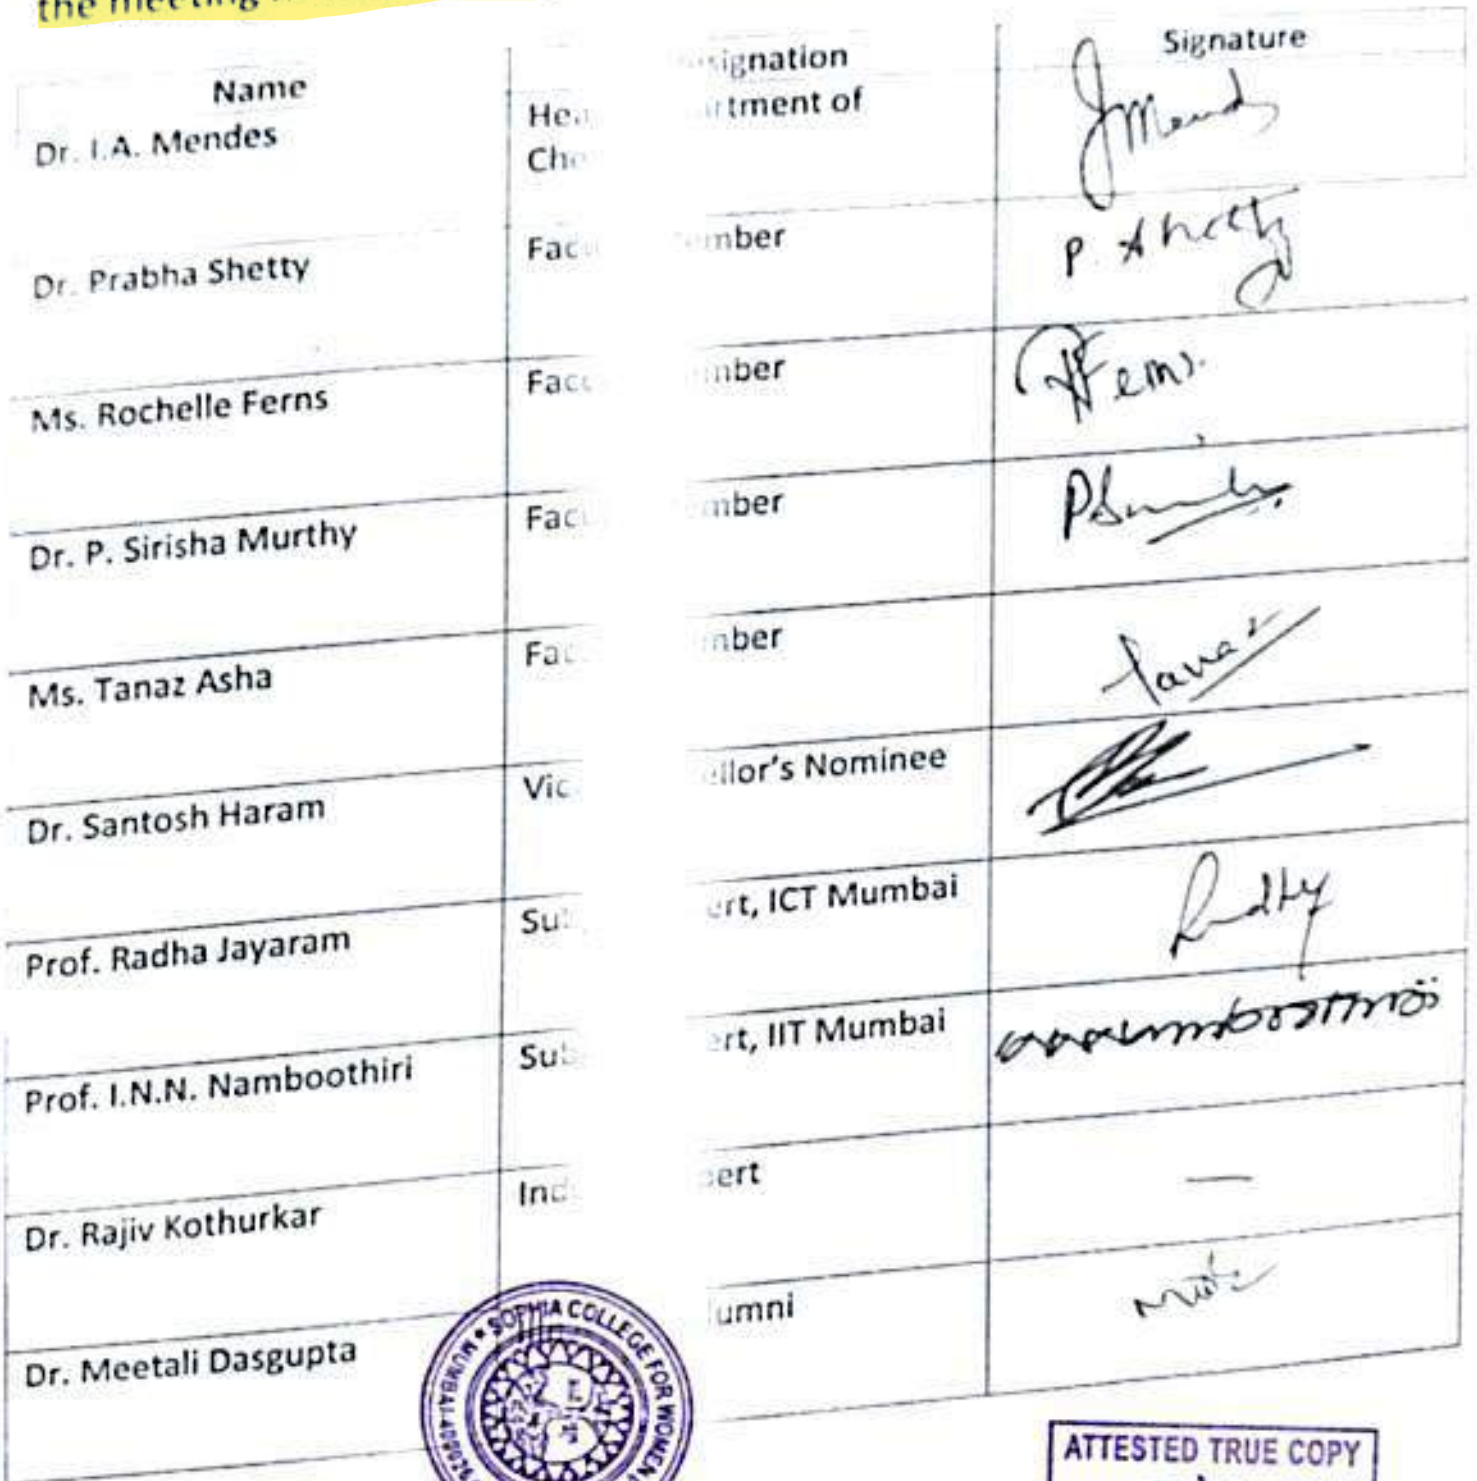 the meeting
Name
signation
Signature
Dr. I.A. Mendes
Hea
rtment of
Che
Mends
Dr. Prabha Shetty
Facu
ember
P. Shetty
Ms. Rochelle Ferns
Facu
mber
Ferns.
Dr. P. Sirisha Murthy
Facu
ember
Ms. Tanaz Asha
Fac
mber
Tanaz
Dr. Santosh Haram
Vic
ellor's Nominee
Prof. Radha Jayaram
Sub
ert, ICT Mumbai
Prof. I.N.N. Namboothiri
Sub
ert, IIT Mumbai
Dr. Rajiv Kothurkar
Ind
pert
—
Dr. Meetali Dasgupta
lumni
SOPHIA COLLEGE FOR WOMEN
MUMBAI-400026
ATTESTED TRUE COPY